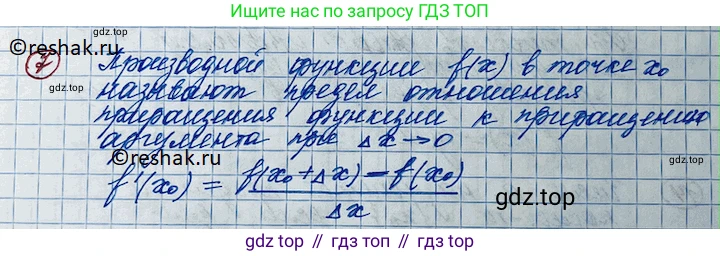 Ищите нас по запросу ГДЗ ТОП
©reshak.ru
7 Производной функции f(x) в точке x₀
называют предел отношения
приращения функции к приращению
аргумента при Δx→0
©reshak.ru
f'(x₀) = f(x₀+Δx) - f(x₀)
Δx
gdz.top // гдз.топ // gdz.top